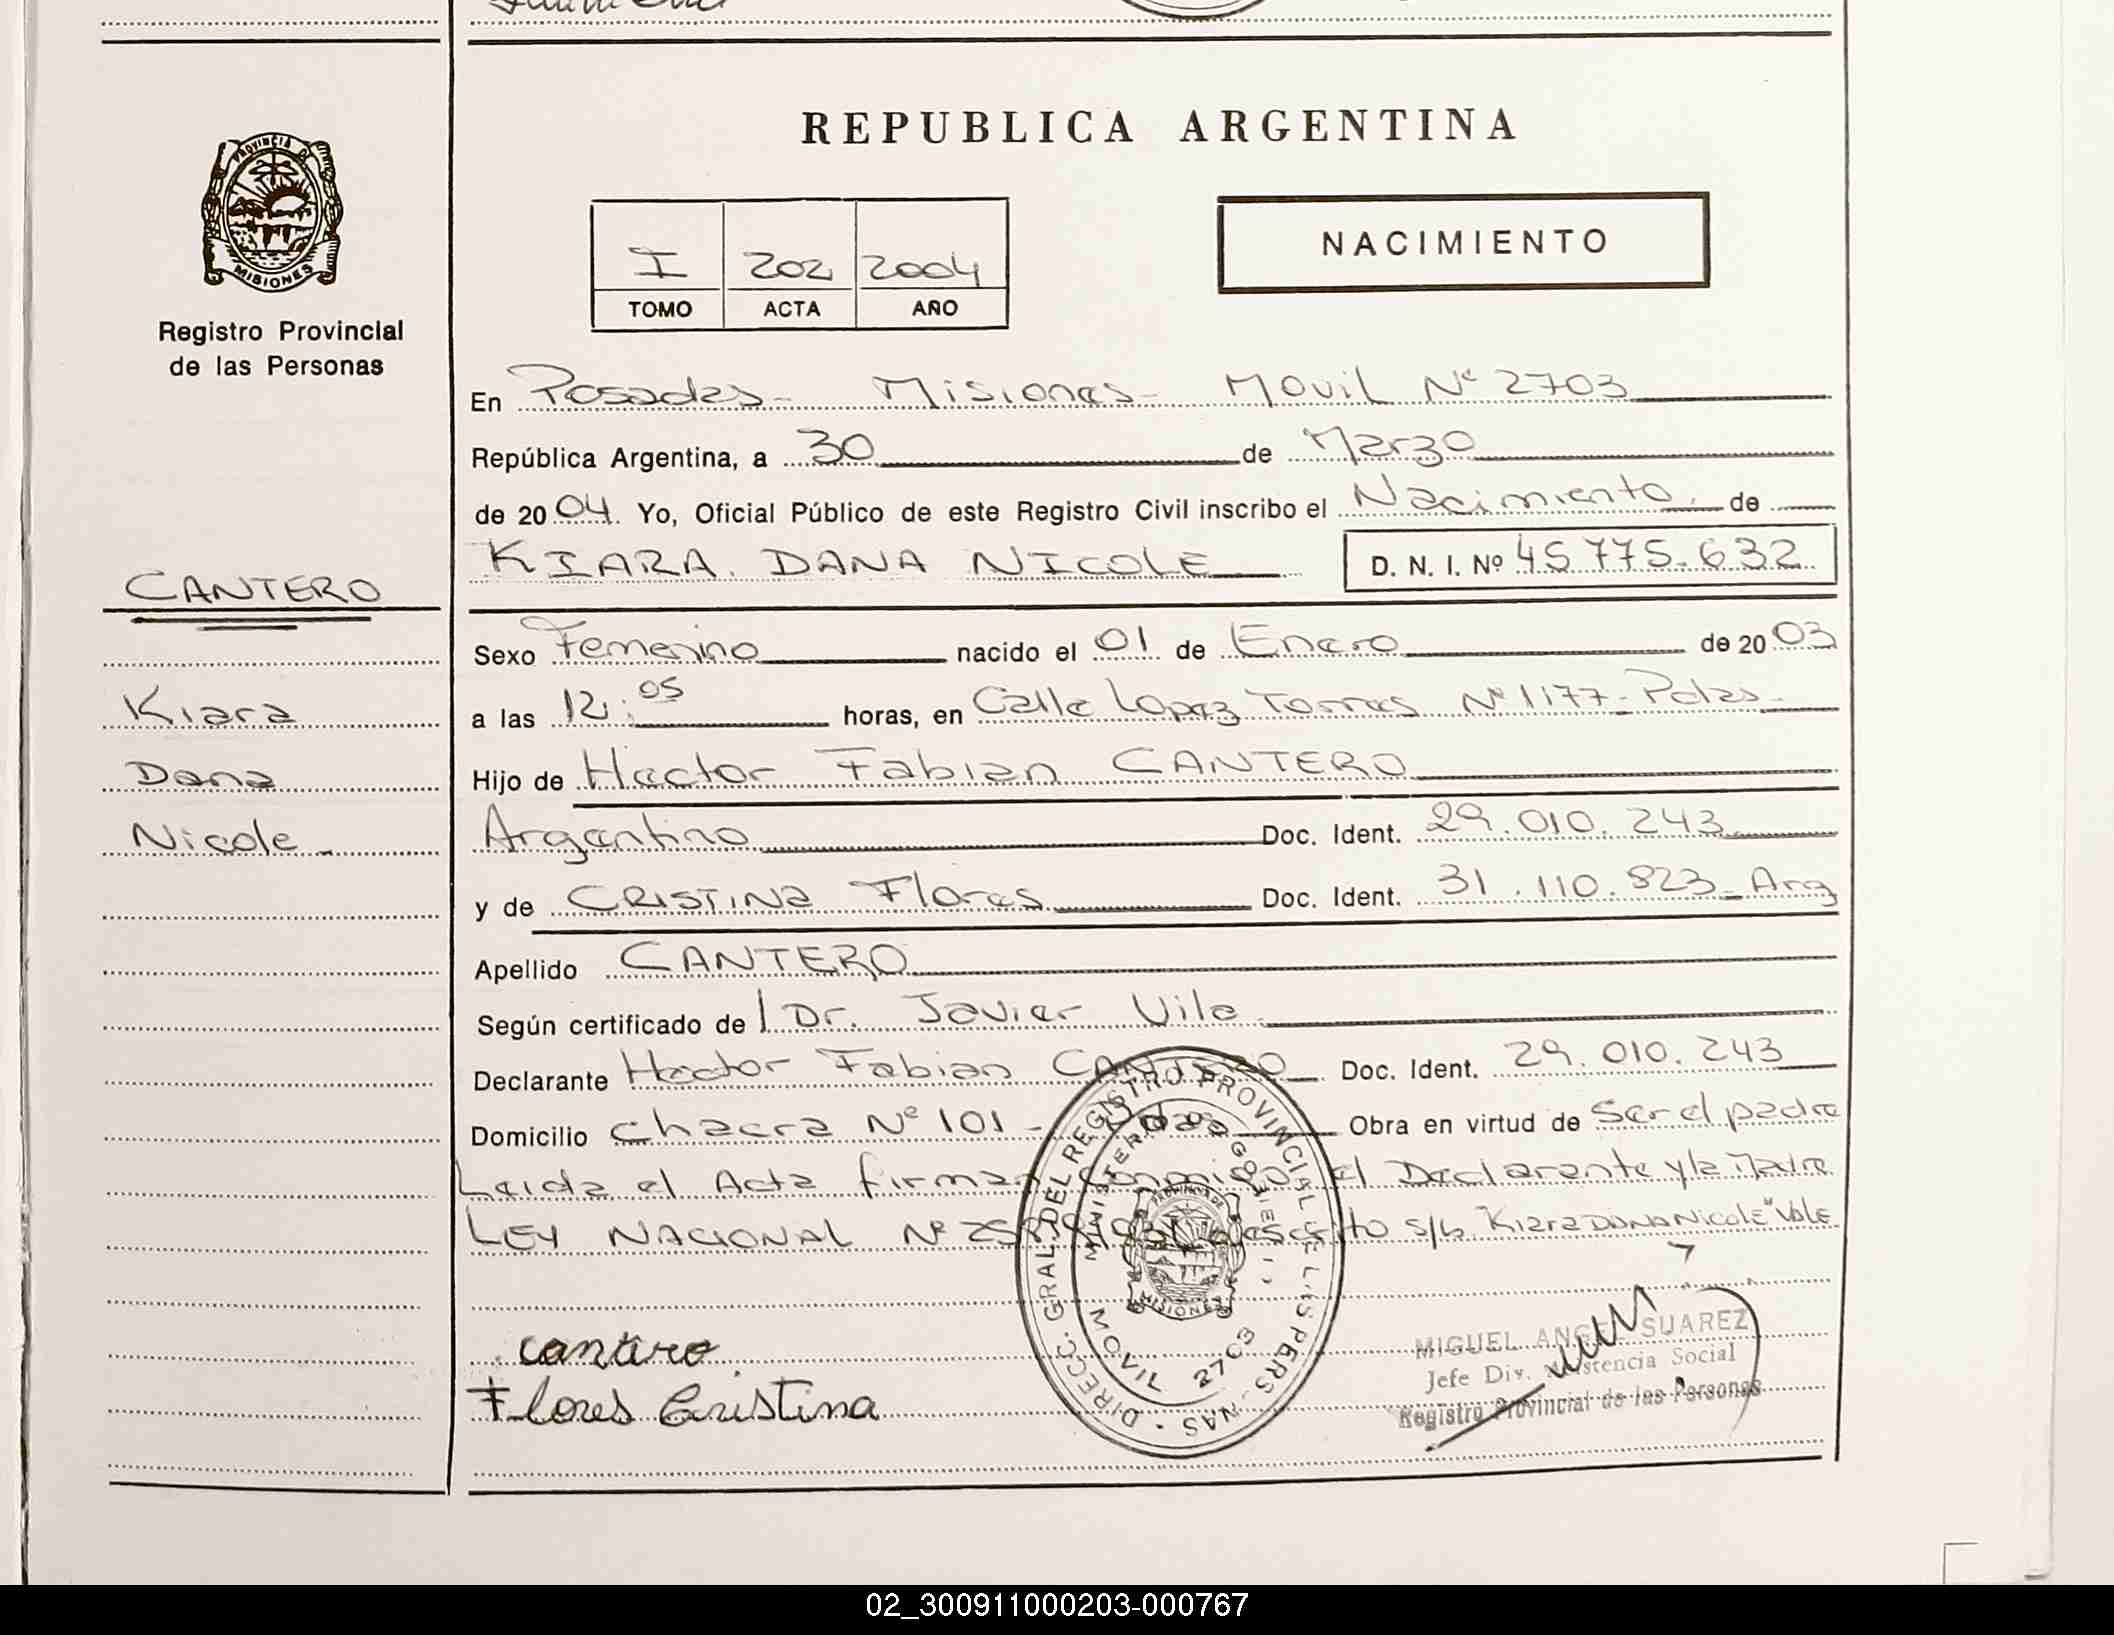 REPUBLICA ARGENTINA
PROVINCIA DE
MISIONES
Registro Provincial
de las Personas
I 202 2004
TOMO ACTA AÑO
NACIMIENTO
En Posadas - Misiones - Movil Nº 2703
República Argentina, a 30 de Marzo
de 2004. Yo, Oficial Público de este Registro Civil inscribo el Nacimiento. de
KIARA DANA NICOLE D. N. I. Nº 45.775.632
CANTERO
Kiara
Dana
Nicole -
Sexo Femenino nacido el 01 de Enero de 2003
a las 12:05 horas, en Calle Lopez Torres Nº 1177 - Pdas -
Hijo de Hector Fabian CANTERO
Argentino Doc. Ident. 29.010.243
y de CRISTINA Flores Doc. Ident. 31.110.823 - Arg
Apellido CANTERO
Según certificado de Dr. Javier Vila
Declarante Hector Fabian CANTERO Doc. Ident. 29.010.243
Domicilio Chacra Nº 101 - Pdas Obra en virtud de Ser el padre
Leida el Acta firman conmigo el Declarante y la Madre
LEY NACIONAL Nº s/b. "Kiara Dana Nicole" Vale
cantero
Flores Cristina
DIRECC. GRAL. DEL REGISTRO PROVINCIAL DE LAS PERSONAS
MINISTERIO DE GOBIERNO
MISIONES
MOVIL 2703
MIGUEL ANGEL SUAREZ
Jefe Div. Asistencia Social
Registro Provincial de las Personas
02_300911000203-000767